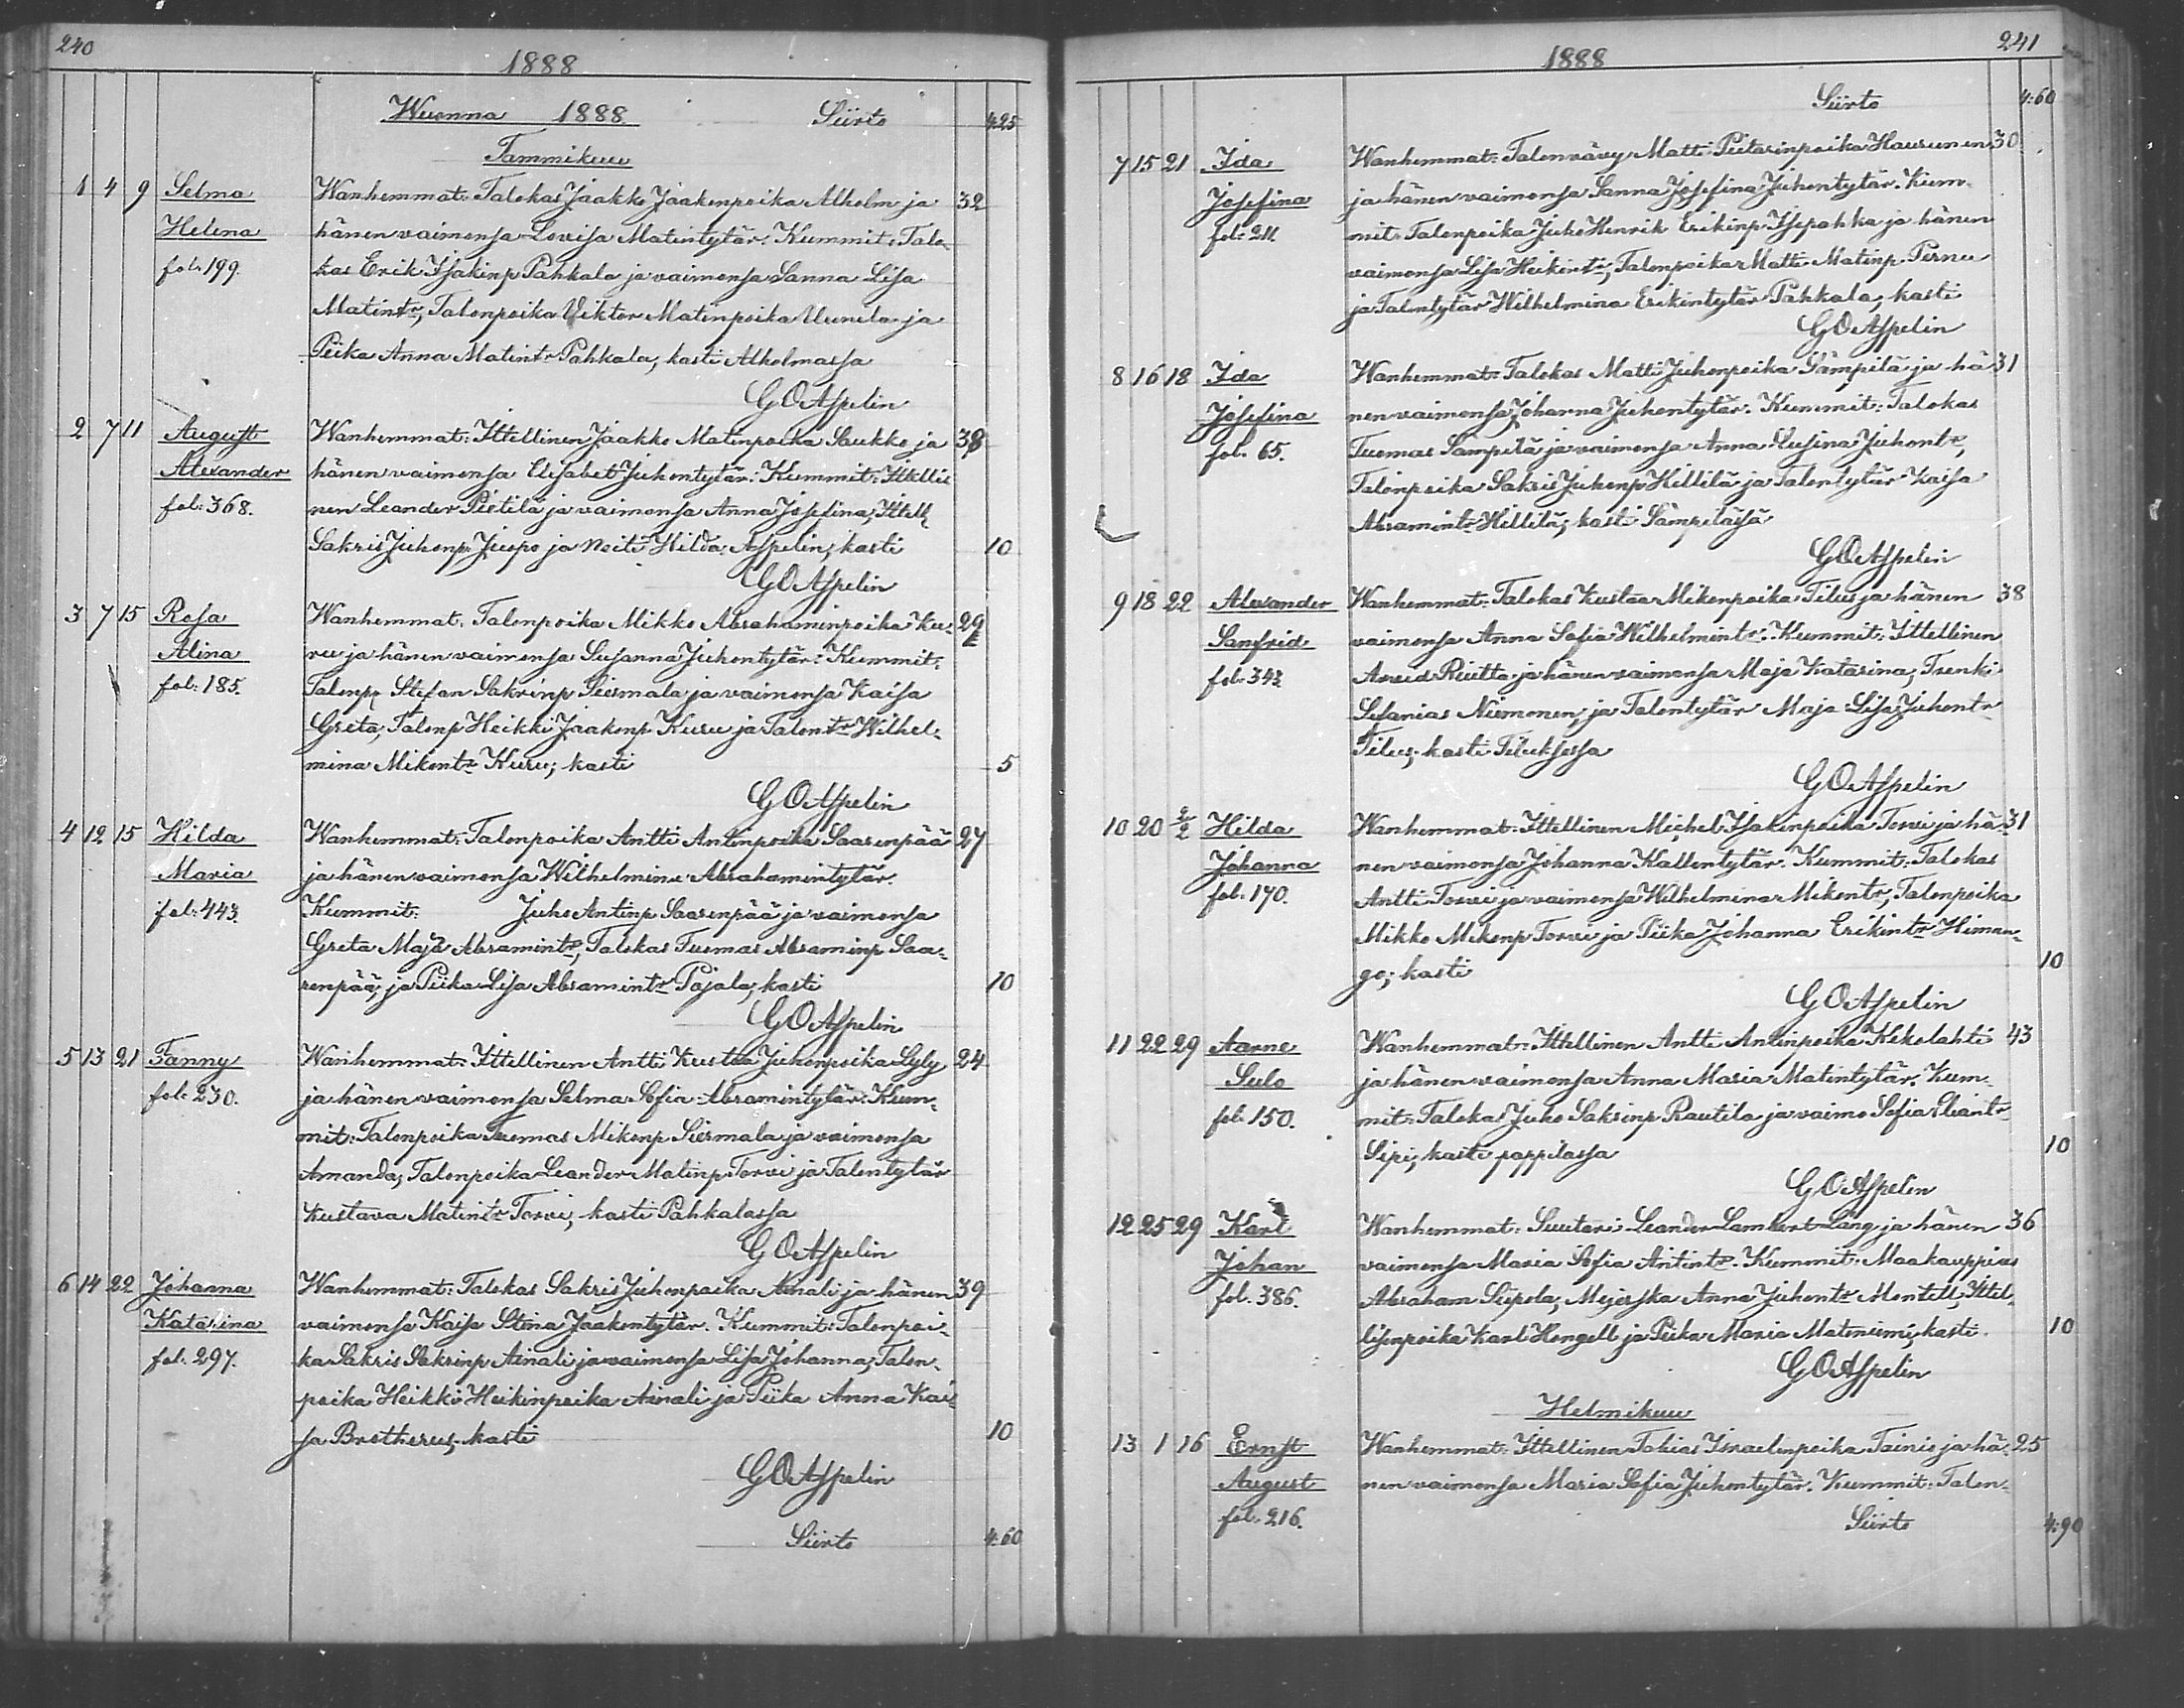 240
1888
Wuonna 1888. Siirto 4:25
Tammikuu
1 4 9 Selma Wanhemmat: Talokas Jaakko Jaakonpoika Alholm ja 32
Helena hänen vaimonsa Lovisa Matintytär. Kummit: Talo-
fol. 199. kas Erik Isakinp Pahkala ja vaimonsa Sanna Lisa
Matintr, Talonpoika Viktor Matinpoika Uunila ja
Piika Anna Matintr Pahkala, kasti Alholmassa
GOAspelin
2 7 11 August Wanhemmat: Ittellinen Jaakko Matinpoika Saukko ja 38
Alexander hänen vaimonsa Elisabet Juhontytär. Kummit: Ittelli-
fol: 368. nen Leander Pietilä ja vaimonsa Anna Josefina, Ittell
Sakris Juhonp. Juopo ja Neiti Hilda Aspelin; kasti 10
GOAspelin
3 7 15 Rosa Wanhemmat: Talonpoika Mikko Abrahaminpoika Ku- 29
Alina ru ja hänen vaimonsa Susanna Juhontytär. Kummit:
fol: 185. Talonp Stefan Sakrinp Siermala ja vaimonsa Kaisa
Greta, Talonp Heikki Jaakonp Kuru ja Talontr Wilhel-
mina Mikontr Kuru; kasti 5
GOAspelin
4 12 15 Hilda Wanhemmat: Talonpoika Antti Antinpoika Saarenpää 27
Maria ja hänen vaimonsa Wilhelmina Abrahamintytär.
fol: 443. Kummit: Juho Antinp Saarenpää ja vaimonsa
Greta Maja Abramintr, Talokas Tuomas Abraminp Saa-
renpää, ja Piika Lisa Abramintr Pajala; kasti 10
GOAspelin
5 13 21 Fanny Wanhemmat: Ittellinen Antti Kustaa Juhonpoika Lyly 24
fol: 230. ja hänen vaimonsa Selma Sofia Abramintytär. Kum-
mit: Talonpoika Tuomas Mikonp Siermala ja vaimonsa
Amanda, Talonpoika Leander Matinp Torvi ja Talontytär
Kustava Matintr Torvi, kasti Pahkalassa
GOAspelin
6 14 22 Johanna Wanhemmat: Talokas Sakris Juhonpoika Ainali ja hänen 39
Katarina vaimonsa Kaisa Stina Jaakontytär. Kummit: Talonpoi-
fol. 297. ka Sakris Sakrinp Ainali ja vaimonsa Lisa Johanna, Talon-
poika Heikki Heikinpoika Ainali ja Piika Anna Kai-
sa Brotherus; kasti 10
GOAspelin
Siirto 4:60
241
1888
Siirto 4:60
7 15 21 Ida Wanhemmat: Talonvävy Matti Pietarinpoika Haurunen 30
Josefina ja hänen vaimonsa Sanna Josefina Juhontytär. Kum-
fol: 211. mit: Talonpoika Juho Henrik Erikinp Isopahka ja hänen
vaimonsa Lisa Heikintr, Talonpoika Matti Matinp Pernu
ja Talontytär Wilhelmina Erikintytär Pahkala, kasti
GOAspelin
8 16 18 Ida Wanhemmat: Talokas Matti Juhonpoika Sämpilä ja hä- 31
Josefina nen vaimonsa Johanna Juhontytär. Kummit: Talokas
fol. 65. Tuomas Sämpilä ja vaimonsa Anna Lusina Juhontr,
Talonpoika Sakris Juhonp Hillilä ja Talontytär Kaisa
Abramintr Hillilä; kasti Sämpilässä
GOAspelin
9 18 22 Alexander Wanhemmat: Talokas Kustaa Mikonpoika Tilus ja hänen 38
Sanfrid vaimonsa Anna Sofia Wilhelmintr. Kummit: Ittellinen
fol. 343. Arvid Riutta ja hänen vaimonsa Maja Katarina, Trenki
Sefanias Niemonen, ja Talontytär Maja Lisa Juhontr
Tilus; kasti Tiluksessa
GOAspelin
10 20 2/2 Hilda Wanhemmat: Ittellinen Michel Isakinpoika Torvi ja hä- 31
Johanna nen vaimonsa Johanna Kallentytär. Kummit: Talokas
fol. 170. Antti Torvi ja vaimonsa Wilhelmina Mikontr, Talonpoika
Mikko Mikonp Torvi ja Piika Johanna Erikintr Himan-
go; kasti 10
GOAspelin
11 22 29 Aarne Wanhemmat: Ittellinen Antti Antinpoika Kekolahti 43
Sulo ja hänen vaimonsa Anna Maria Matintytär. Kum-
fol. 150. mit: Talokas Juho Sakrinp Rautila ja vaimo Sofia Eliantr
Sipi; kasti pappilassa 10
GOAspelin
12 25 29 Karl Wanhemmat: Suutari Leander Lambert Lång ja hänen 36
Johan vaimonsa Maria Sofia Antintr. Kummit: Maakauppias
fol. 386. Abraham Siipola, Mejerska Anna Juhontr Montell, Ittel-
lisenpoika Karl Hongell ja Piika Maria Matoniemi; kasti 10
GOAspelin
Helmikuu
13 1 16 Ernst Wanhemmat: Ittellinen Tobias Israelinpoika Tainio ja hä- 25
August nen vaimonsa Maria Sofia Juhontytär. Kummit: Talon-
fol. 216. Siirto 4:90